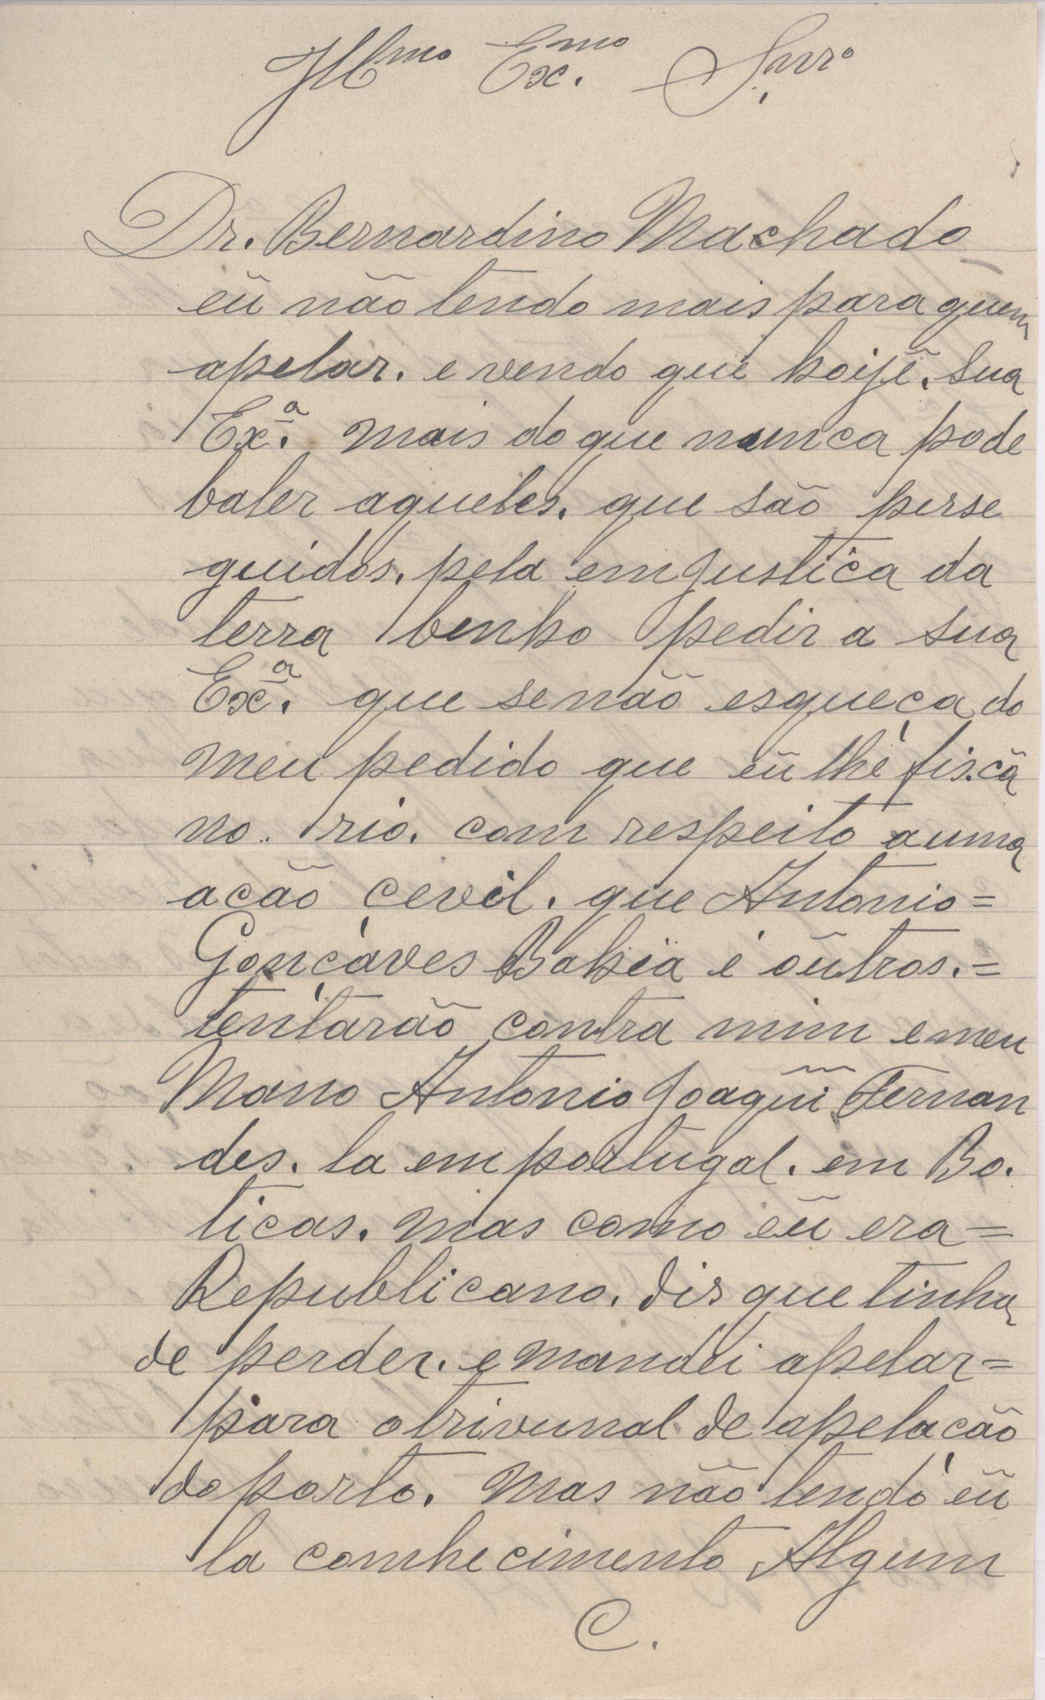 Illmo Ex.mo Snr.º
Dr. Bernardino Machado
eũ não tendo mais para quem
apelar. e vendo que hoije. Sua
Ex.ª mais do que nunca pode
baler aqueles. que são perse
guidos. pela emjustiça da
terra benho pedir a sua
Ex.ª que senão esqueça do
meu pedido que eũ lhe fis. cã
no. rio. com respeito a uma
acão çevil. que Antonio=
Gonçaves Bahia é oũtros.=
tentarão contra mim e meu
Mano Antonio Joaquim Fernan
des. la em portugal. em Bo.
ticas. mas como eũ era=
Republicano. dis que tinha
de perder. e mandei apelar=
para o trivunal de apelacão
do porto. mas não tendo eũ
la comhecimento Algum
C.